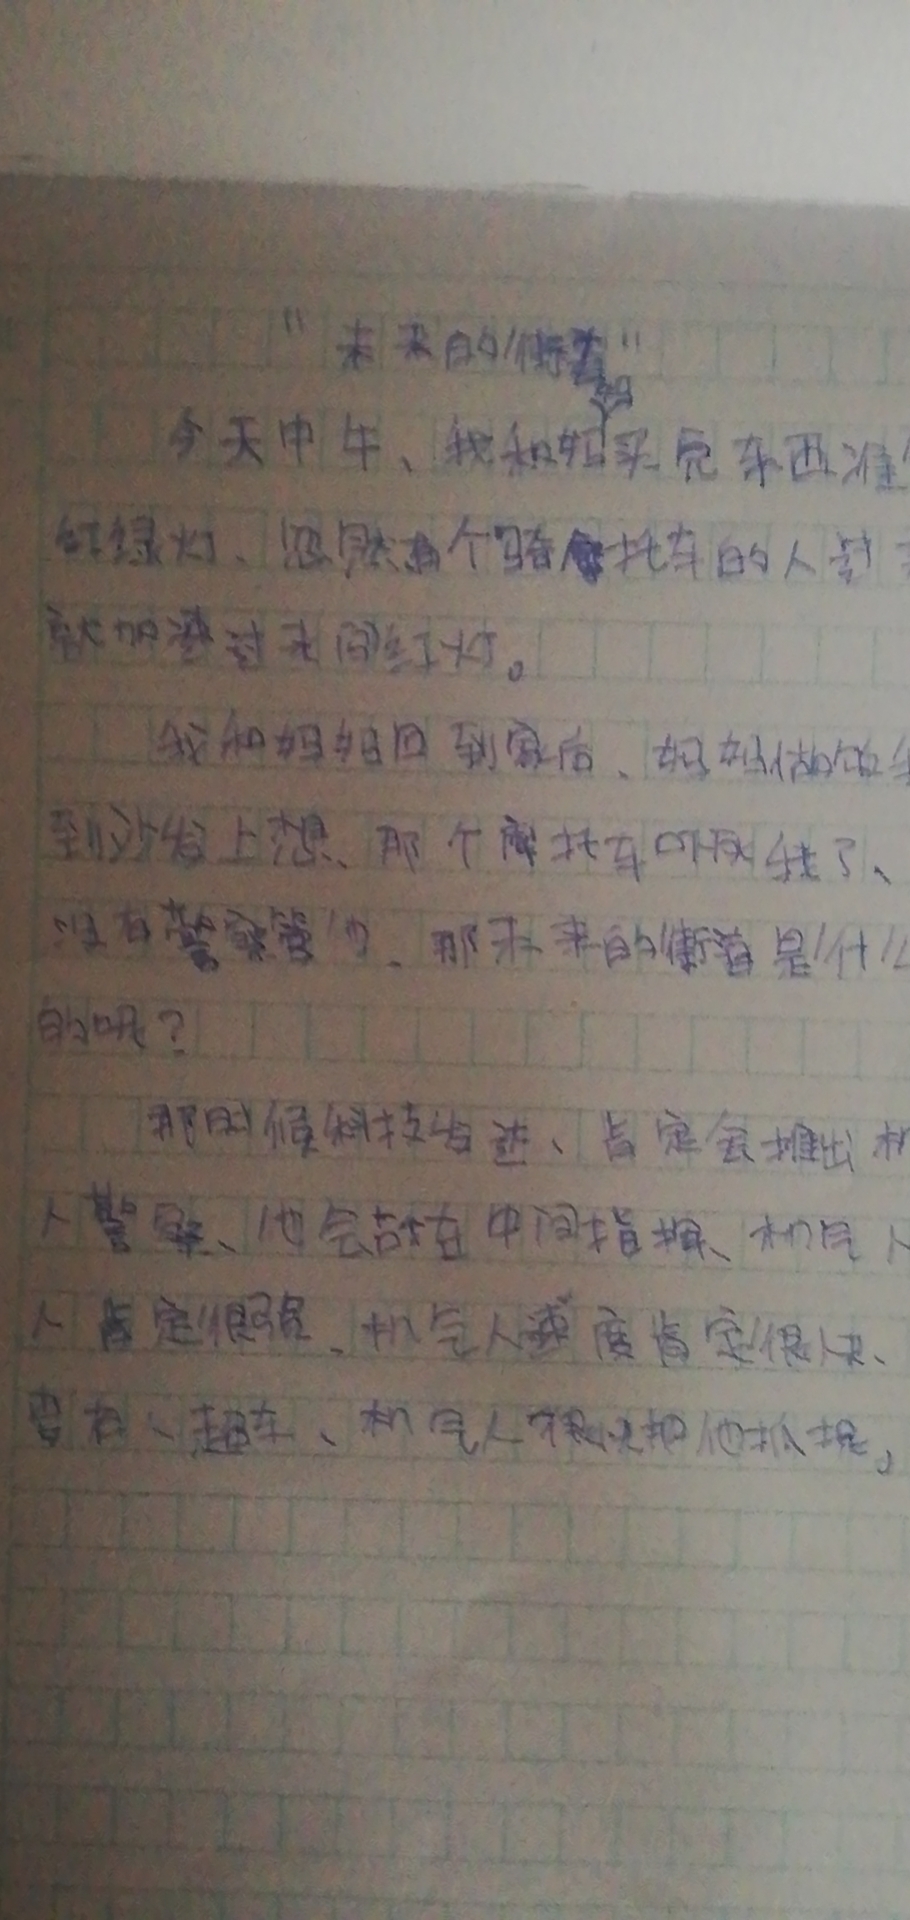 "未来的街道"
今天中午、我和妈妈买完东西准
红绿灯、忽然有个骑摩托车的人
就加速过去闯红灯。
我和妈妈回到家后、妈妈做饭
到沙发上想、那个摩托车吓死我了、
没有警察管他、那未来的街道是什么
的呢?
那时候科技发达、肯定会推出机
人警察、他会站在中间指挥、机气人
人肯定很强、机气人速度肯定很快、
要有人超车、机气人很快把他抓捉。